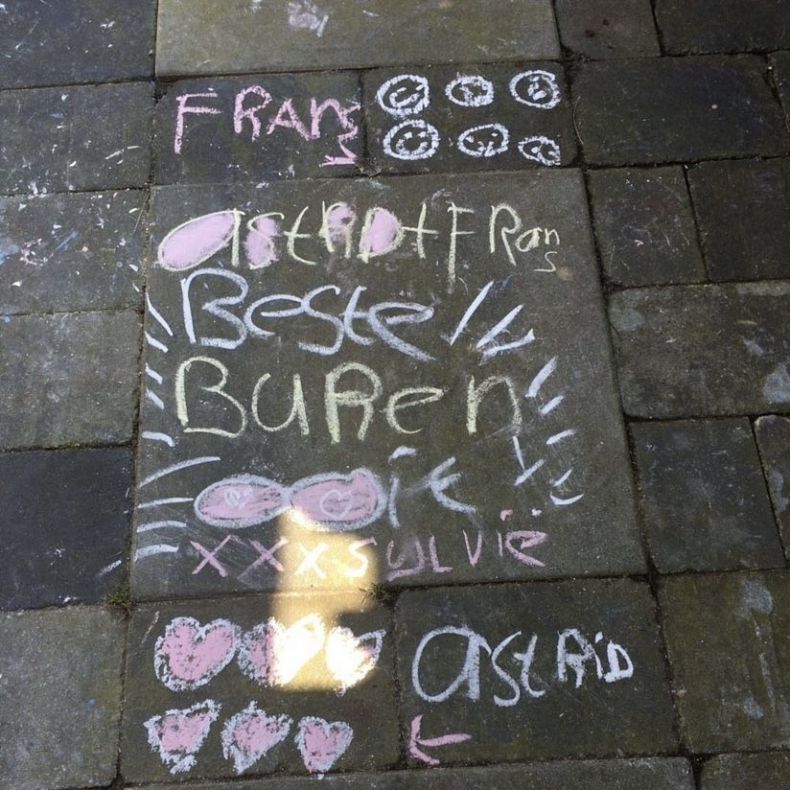 FRAns
astRiD+FRans
Beste
BuRen
ooit
xxx SyLvië
astRiD